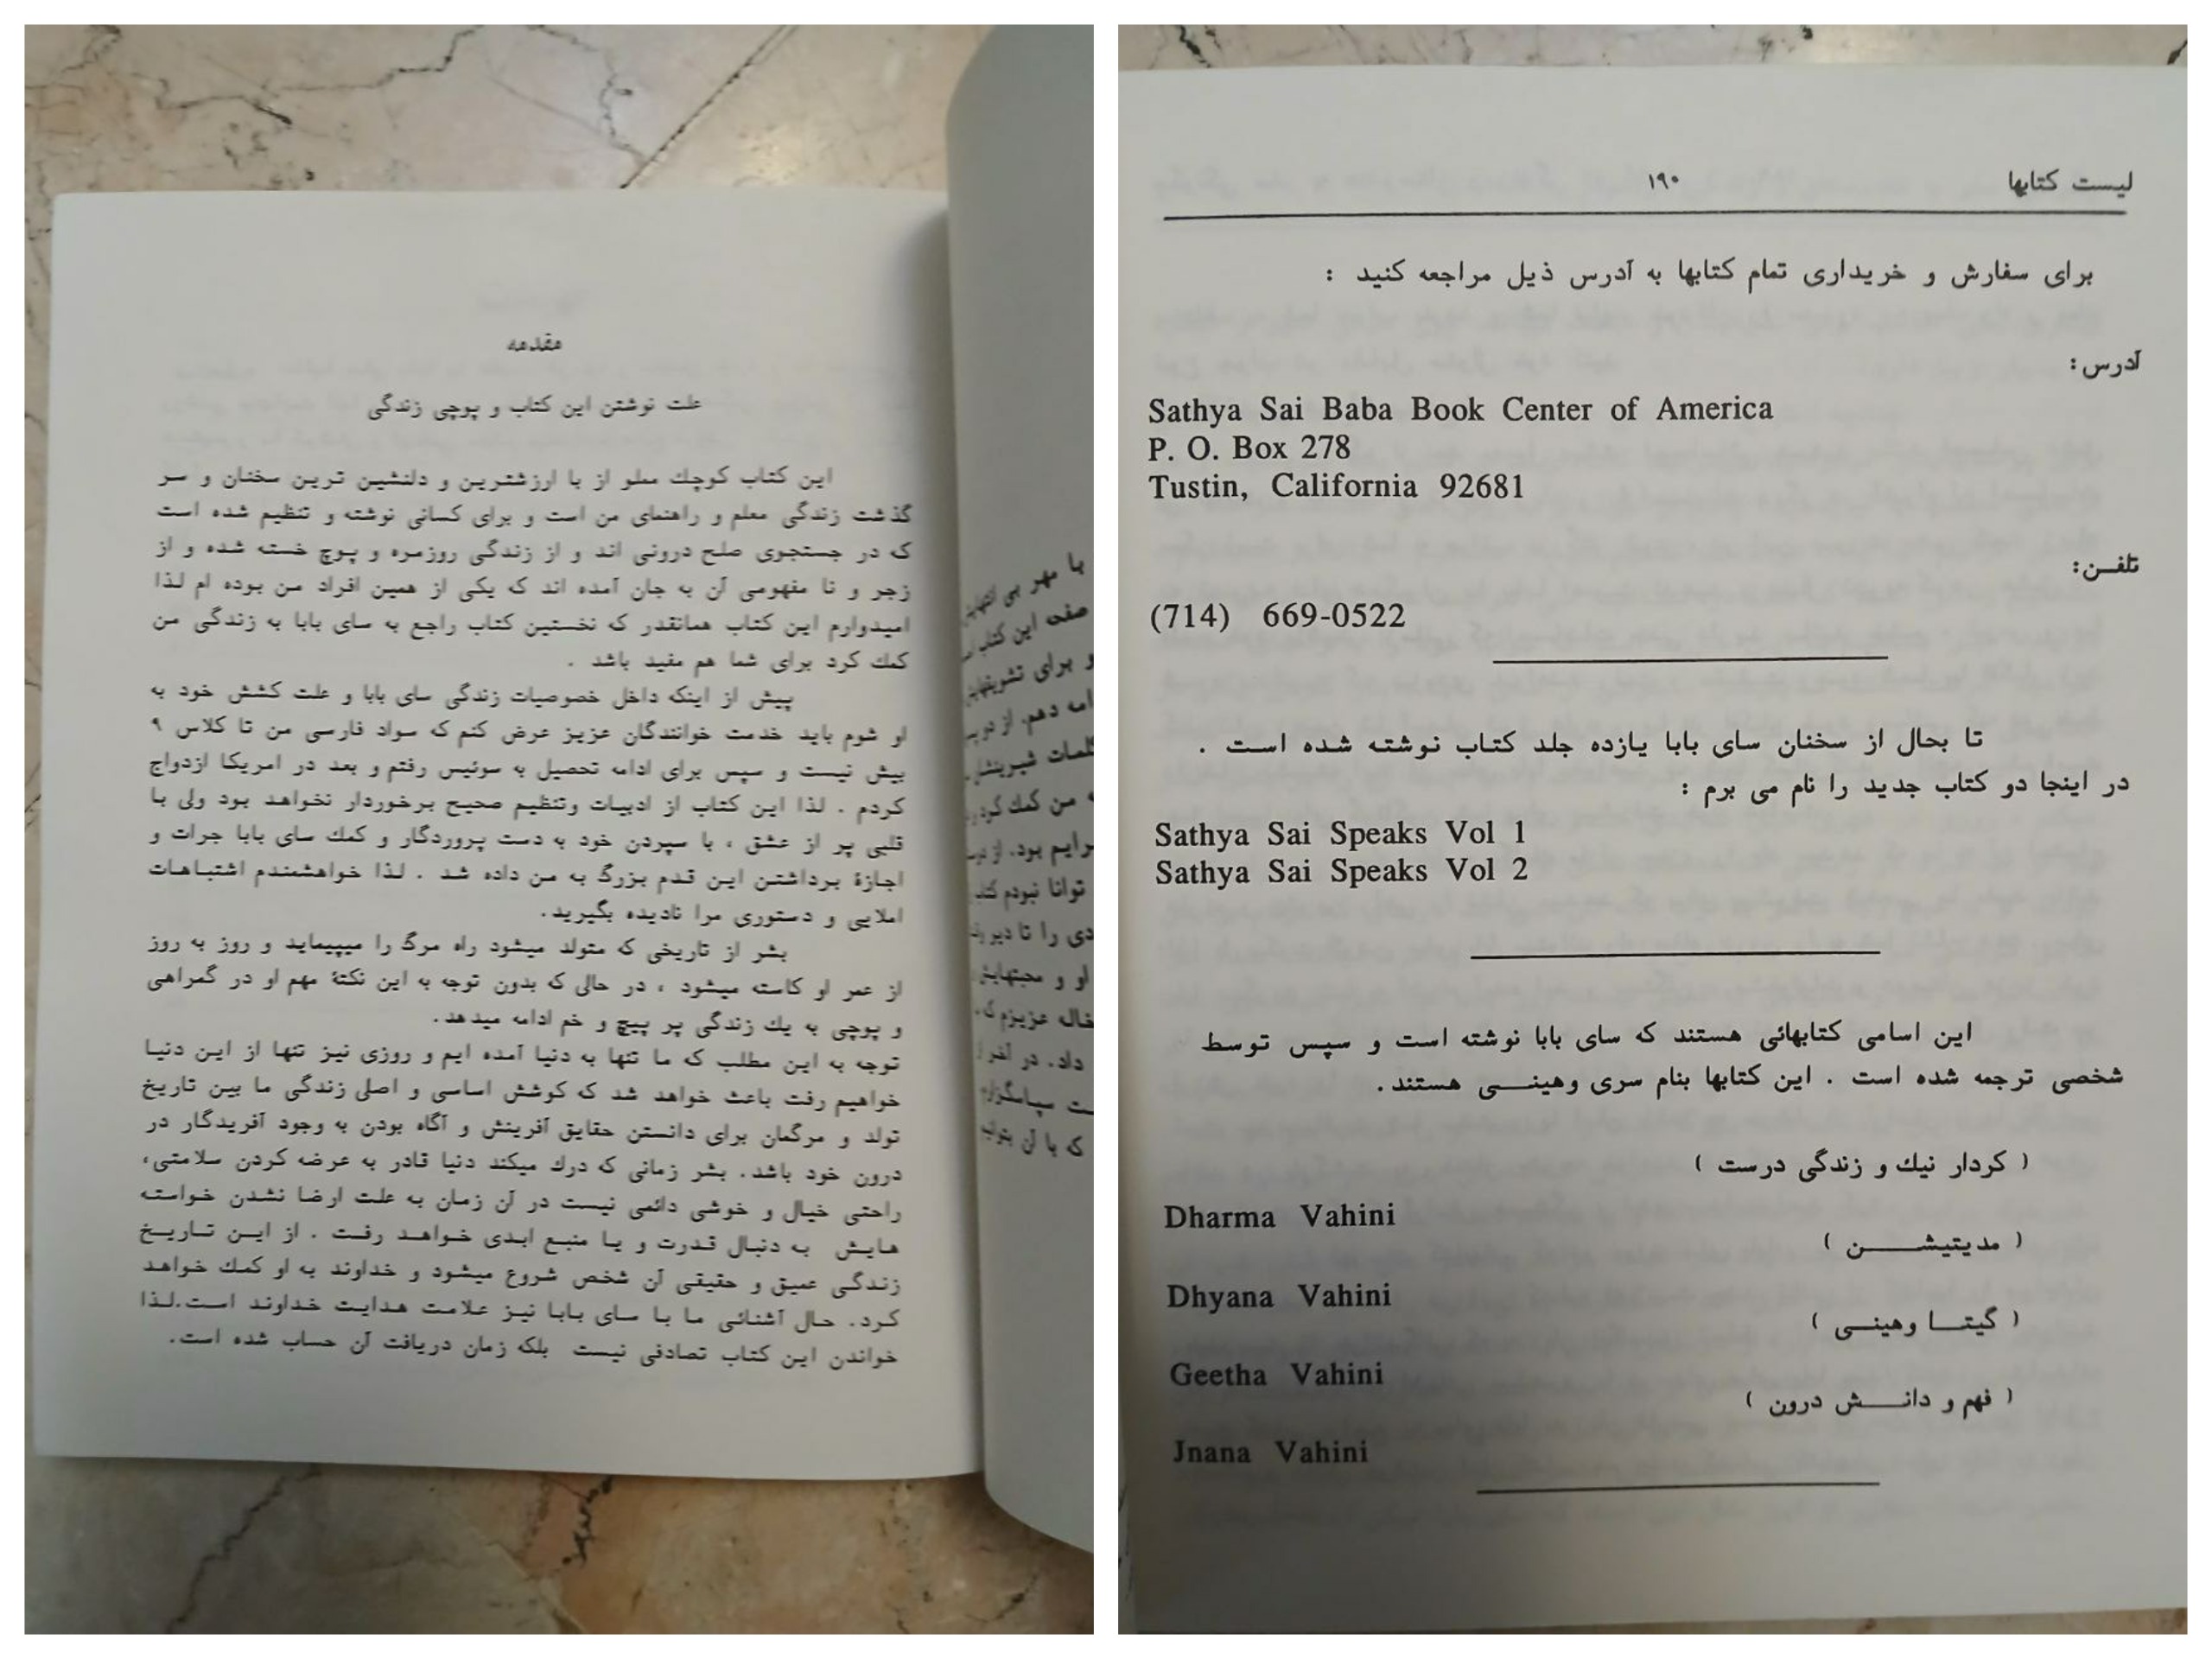 مقدمه
علت نوشتن این کتاب و پوچی زندگی
این کتاب کوچك مملو از با ارزشترین و دلنشین ترین سخنان و سر
گذشت زندگی معلم و راهنمای من است و برای کسانی نوشته و تنظیم شده است
که در جستجوی صلح درونی اند و از زندگی روزمره و پوچ خسته شده و از
زجر و نا مفهومی آن به جان آمده اند که یکی از همین افراد من بوده ام لذا
امیدوارم این کتاب همانقدر که نخستین کتاب راجع به سای بابا به زندگی من
کمك کرد برای شما هم مفید باشد .
پیش از اینکه داخل خصوصیات زندگی سای بابا و علت کشش خود به
او شوم باید خدمت خوانندگان عزیز عرض کنم که سواد فارسی من تا کلاس ۹
بیش نیست و سپس برای ادامه تحصیل به سوئیس رفتم و بعد در امریکا ازدواج
کردم . لذا این کتاب از ادبیات وتنظیم صحیح برخوردار نخواهد بود ولی با
قلبی پر از عشق ، با سپردن خود به دست پروردگار و کمك سای بابا جرات و
اجازهٔ برداشتن این قدم بزرگ به من داده شد . لذا خواهشمندم اشتباهات
املایی و دستوری مرا نادیده بگیرید.
بشر از تاریخی که متولد میشود راه مرگ را میپیماید و روز به روز
از عمر او کاسته میشود ، در حالی که بدون توجه به این نکتهٔ مهم او در گمراهی
و پوچی به یك زندگی پر پیچ و خم ادامه میدهد.
توجه به این مطلب که ما تنها به دنیا آمده ایم و روزی نیز تنها از این دنیا
خواهیم رفت باعث خواهد شد که کوشش اساسی و اصلی زندگی ما بین تاریخ
تولد و مرگمان برای دانستن حقایق آفرینش و آگاه بودن به وجود آفریدگار در
درون خود باشد. بشر زمانی که درك میکند دنیا قادر به عرضه کردن سلامتی،
راحتی خیال و خوشی دائمی نیست در آن زمان به علت ارضا نشدن خواسته
هایش به دنبال قدرت و یا منبع ابدی خواهد رفت . از این تاریخ
زندگی عمیق و حقیقی آن شخص شروع میشود و خداوند به او کمك خواهد
کرد. حال آشنائی ما با سای بابا نیز علامت هدایت خداوند است.لذا
خواندن این کتاب تصادفی نیست بلکه زمان دریافت آن حساب شده است.
با مهر بی
صفحه این کتاب
و برای
امه دهم. از
کلمات
من کمك کرد
رایم بود.
توانا نبودم
دی را تا دیر
او و
خاله عزیزم
داد. در آخر
ت
که با آن
لیست کتابها ۱۹۰
برای سفارش و خریداری تمام کتابها به آدرس ذیل مراجعه کنید :
آدرس:
Sathya Sai Baba Book Center of America
P. O. Box 278
Tustin, California 92681
تلفن:
(714) 669-0522
تا بحال از سخنان سای بابا یازده جلد کتاب نوشته شده است .
در اینجا دو کتاب جدید را نام می برم :
Sathya Sai Speaks Vol 1
Sathya Sai Speaks Vol 2
این اسامی کتابهائی هستند که سای بابا نوشته است و سپس توسط
شخصی ترجمه شده است . این کتابها بنام سری وهینی هستند.
( کردار نیك و زندگی درست )
Dharma Vahini
( مدیتیشن )
Dhyana Vahini
( گیتا وهینی )
Geetha Vahini
( فهم و دانش درون )
Jnana Vahini